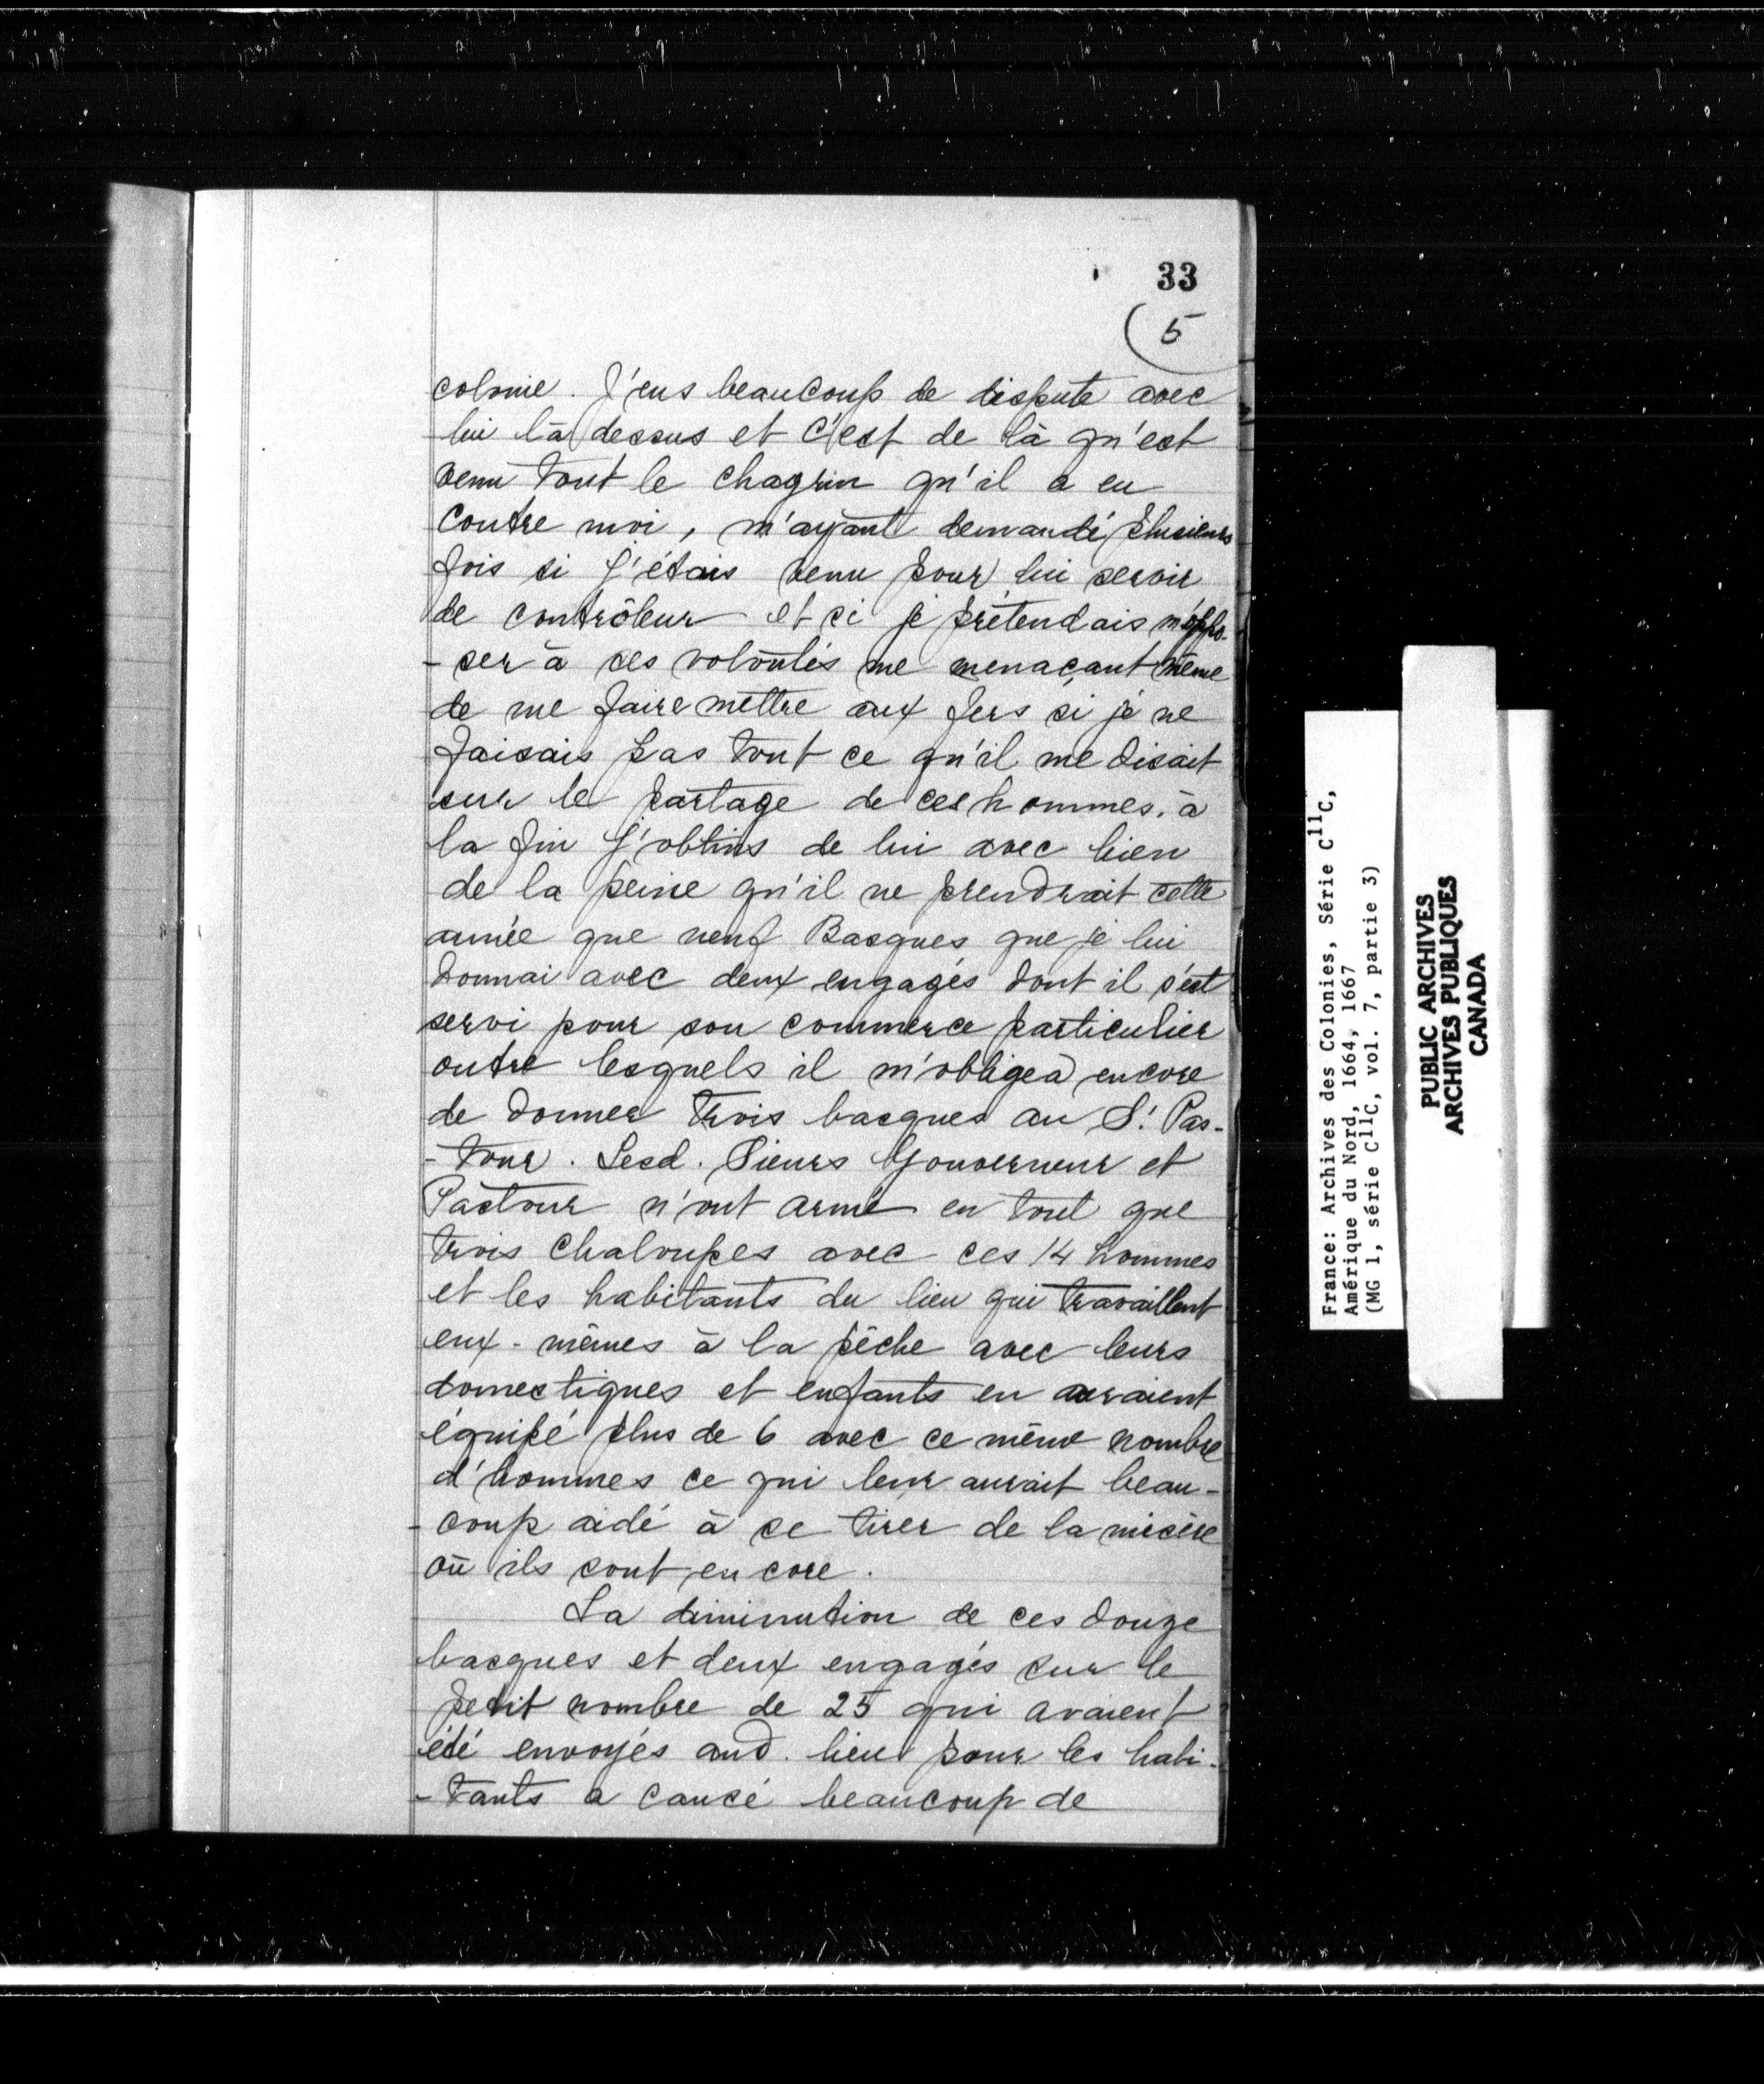 33
5
colonie. J'eus beaucoup de dispute avec
lui là dessus et c'est de là qu'est
venu tout le chagrin qu'il a eu
contre moi, m'ayant demandé plusieurs
fois si j'étais venu pour lui servir
de contrôleur et si je prétendais m'oppo-
-ser à ses volontés me menaçant même
de me faire mettre aux fers si je ne
faisais pas tout ce qu'il me disait
sur le partage de ces hommes. à
la fin j'obtins de lui avec bien
de la peine qu'il ne prendrait cette
année que neuf Basques que je lui
donnai avec deux engagés dont il s'est
servi pour son commerce particulier
outre lesquels il m'obligea encore
de donner trois basques au S! Pas-
-tour. Lesd. Sieurs Gouverneur et
Pastour n'ont armé en tout que
trois chaloupes avec ces 14 hommes
et les habitants du lieu qui travaillent
eux-mêmes à la pêche avec leurs
domestiques et enfants en auraient
équipé plus de 6 avec ce même nombre
d'hommes ce qui leur aurait beau-
-coup aidé à se tirer de la misère
où ils sont encore.
La diminution de ces douze
basques et deux engagés sur le
petit nombre de 25 qui avaient
été envoyés aud. lieu pour les habi-
-tants a causé beaucoup de
France: Archives des Colonies, Série C11C,
Amérique du Nord, 1664, 1667
(MG 1, série C11C, vol. 7, partie 3)
PUBLIC ARCHIVES
ARCHIVES PUBLIQUES
CANADA